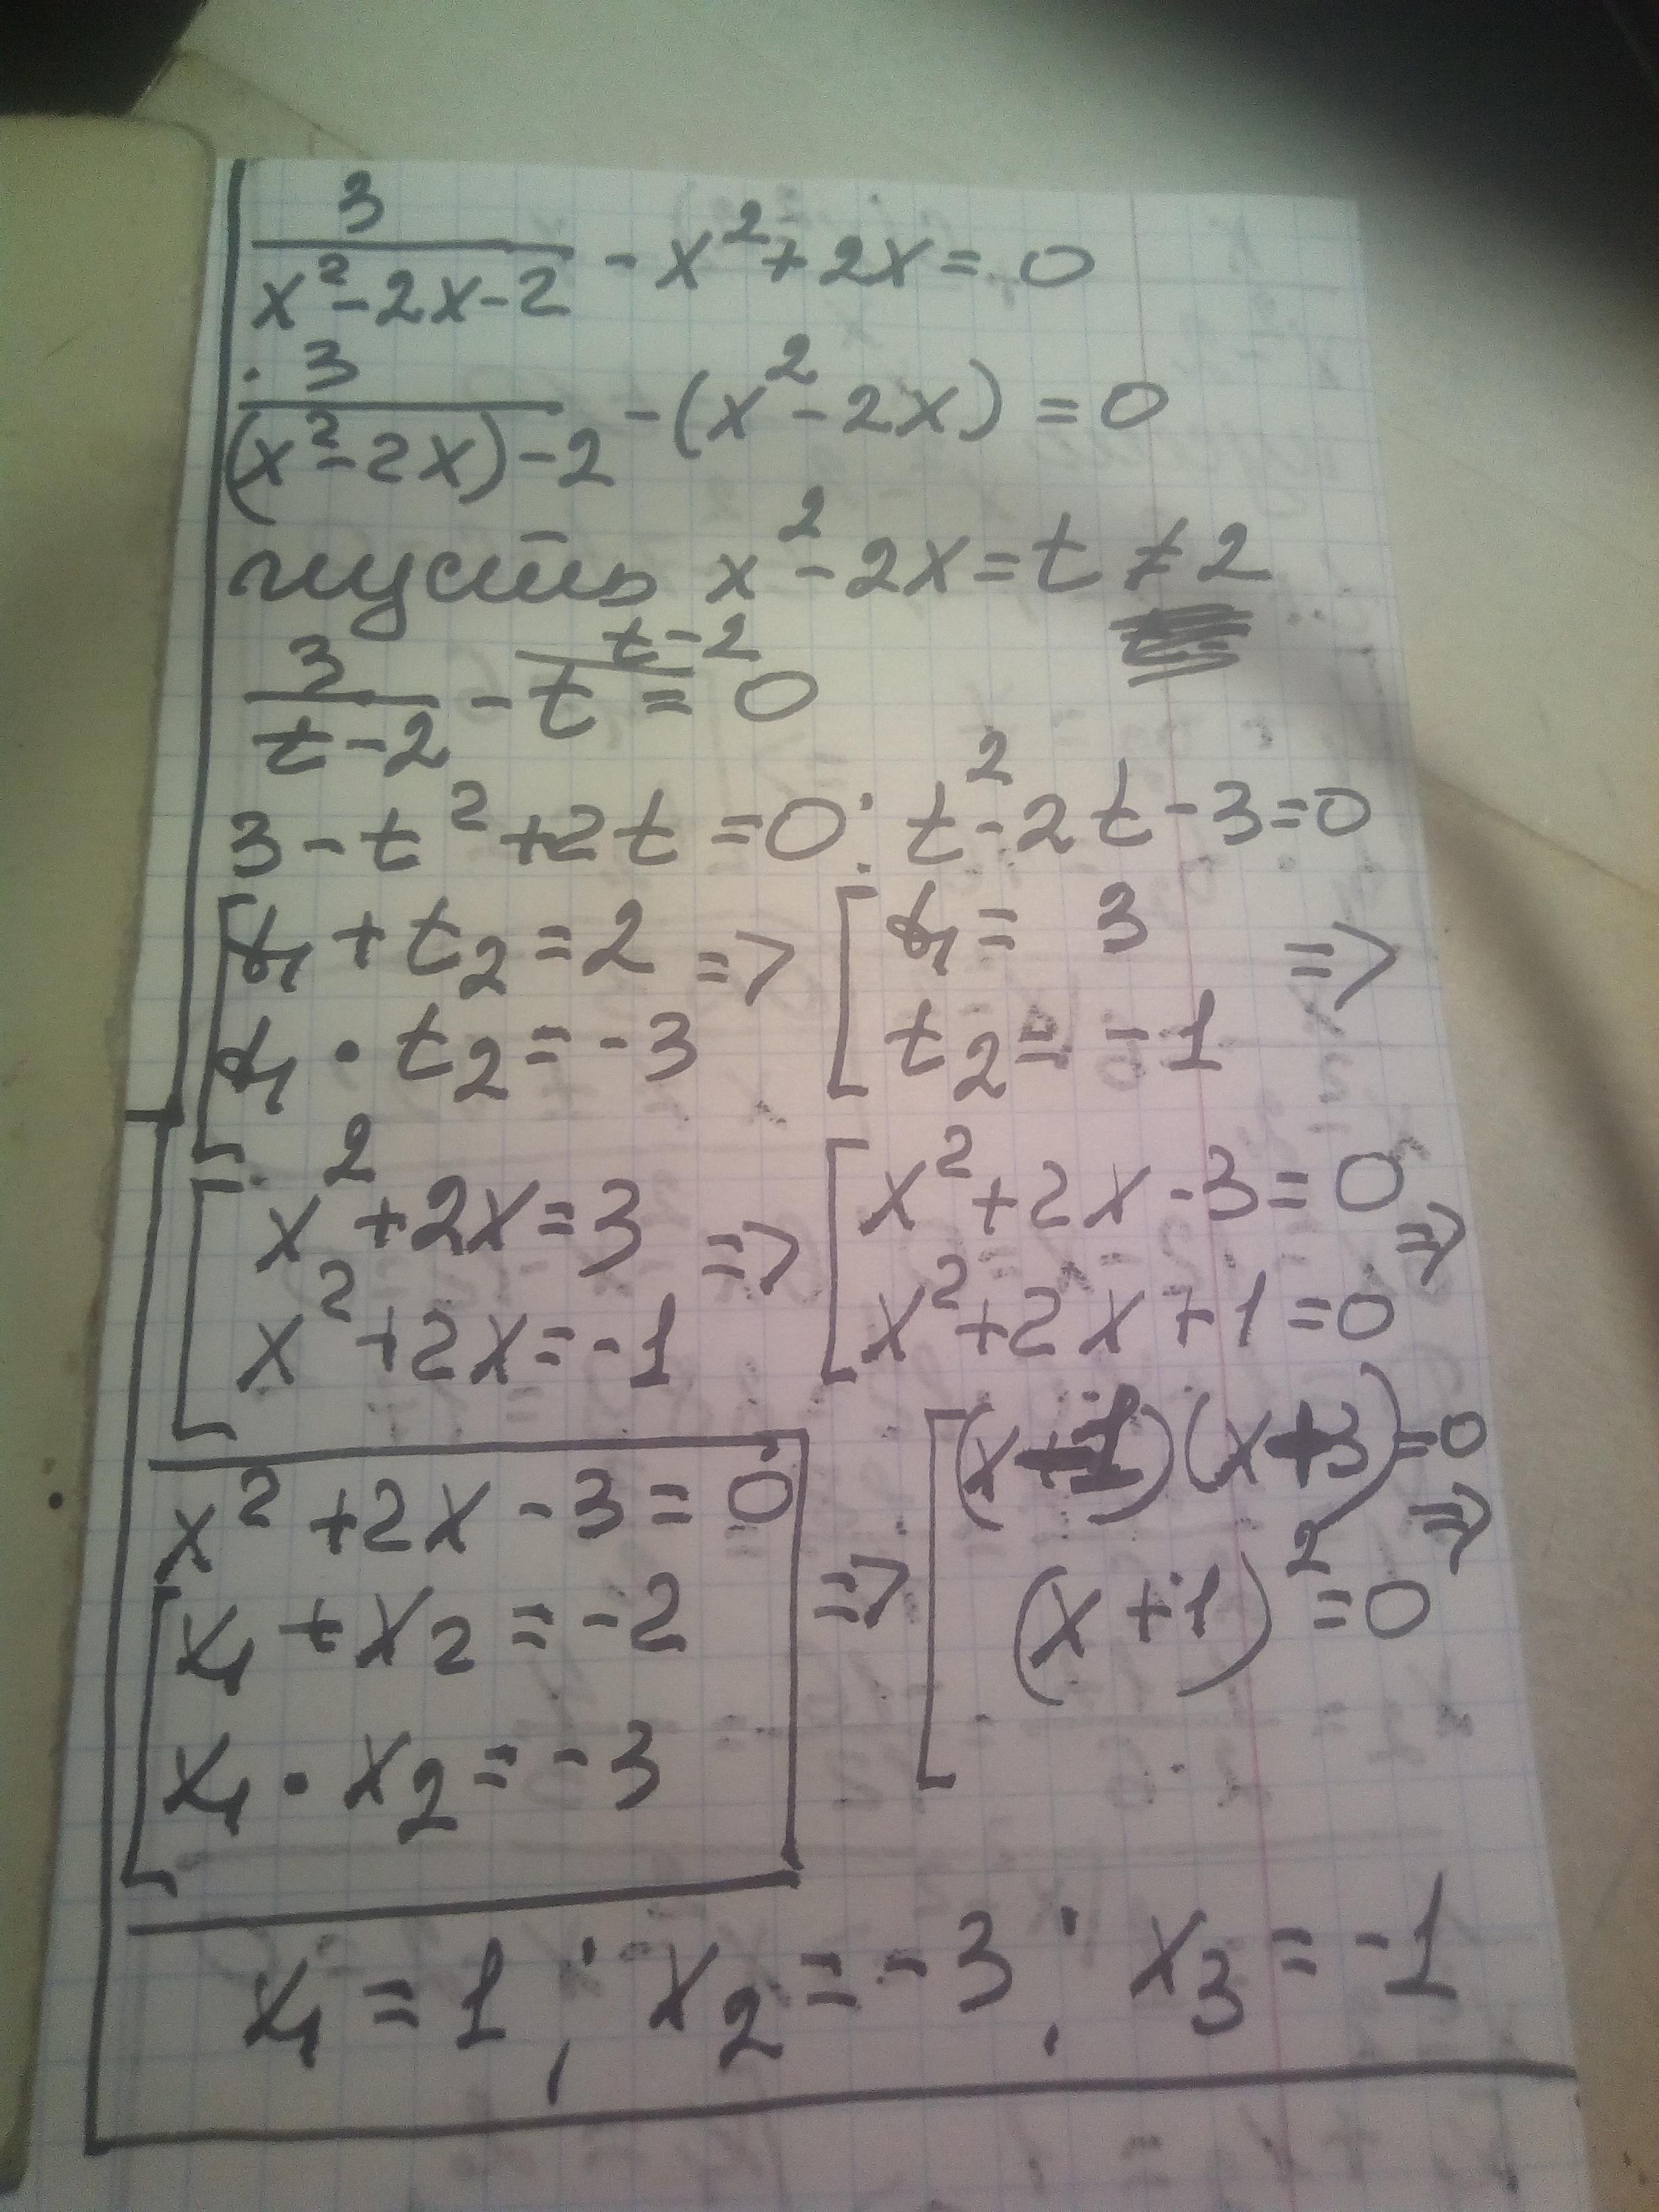 3/(x²-2x-2) - x²+2x=0
3/((x²-2x)-2) - (x²-2x)=0
пусть x²-2x=t ≠2
3/(t-2) - t =0 t-2
3-t²+2t=0; t²-2t-3=0
[t₁+t₂=2 => [t₁=3 =>
t₁·t₂=-3 t₂=-1
[x²+2x=3 => [x²+2x-3=0 =>
x²+2x=-1 x²+2x+1=0
x²+2x-3=0
[x₁+x₂=-2
x₁·x₂=-3
=> [(x-1)(x+3)=0 =>
(x+1)²=0
x₁=1; x₂=-3; x₃=-1